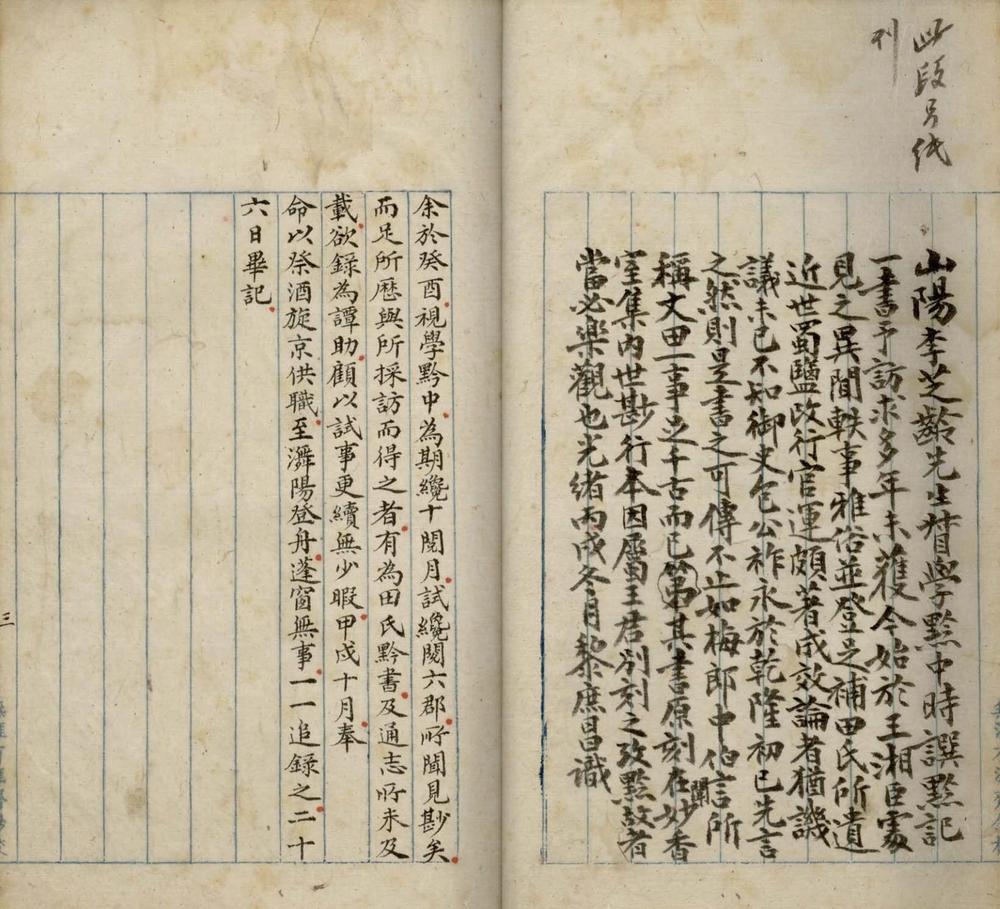 此段另紙
刊
山陽李芝齡先生督學黔中時譔黔記
一書予訪求多年未獲今始於王湘臣處
見之異聞軼事雅俗並登足補田氏所遺
近世蜀鹽改行官運頗著成效論者猶譏
議未已不知御史包公祚永於乾隆初已先言
之然則是書之可傳不止如梅郎中伯言所
稱文田一事足千古而已第其書原刻在妙香
室集內世尠行本因屬王君別刻之攷黔故者
闌
當必樂觀也光緒丙戌冬月黎庶昌識
余於癸酉視學黔中為期纔十閱月試纔閱六郡所聞見尠矣
而足所歷與所採訪而得之者有為田氏黔書及通志所未及
載欲錄為譚助顧以試事更續無少暇甲戌十月奉
命以祭酒旋京供職至㵲陽登舟蓬窗無事一一追錄之二十
六日畢記
三